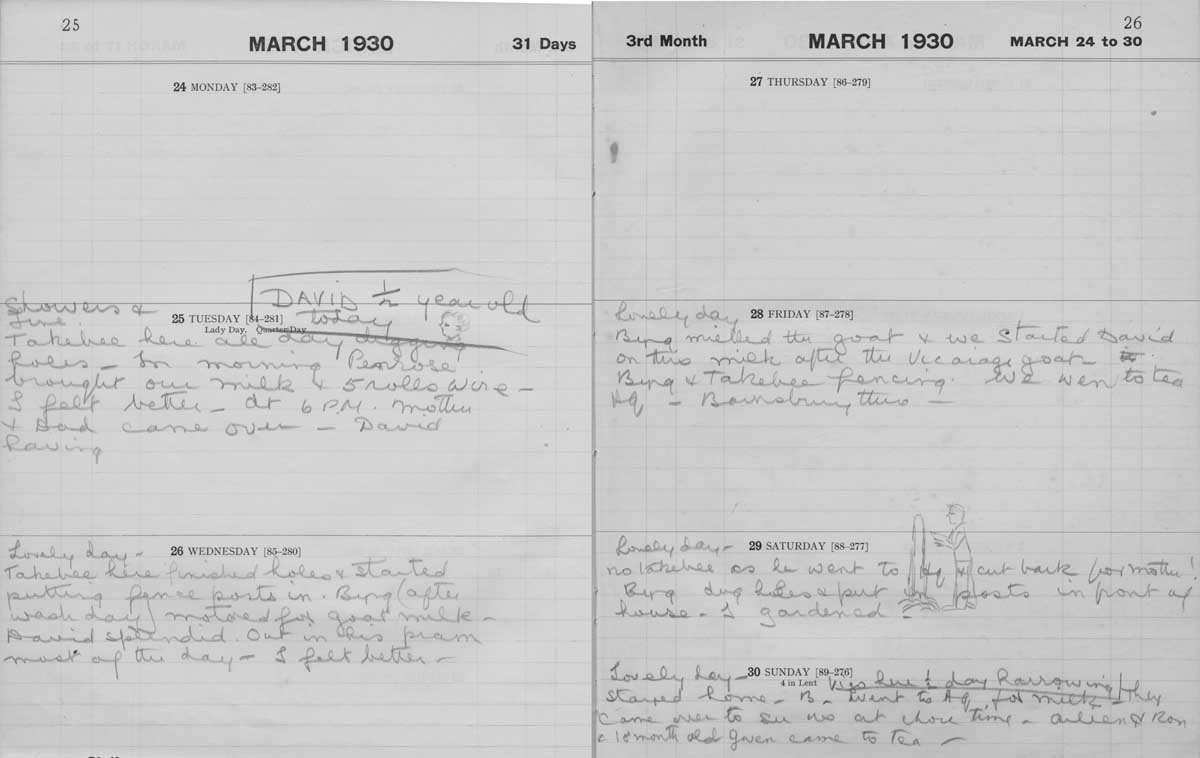 25
MARCH 1930 31 Days
24 MONDAY [83–282]
DAVID ½ year old
today
Showers &
fine
25 TUESDAY [84–281]
Lady Day, Quarter Day
Takebee here all day digging
holes – In morning Penrose
brought our milk & 5 rolls wire –
I felt better – At 6 P.M. Mother
& Dad came over – David
having
26 WEDNESDAY [85–280]
Lovely day –
Takebee here finished holes & started
putting fence posts in. Byng (after
wash day) motored for goat milk –
David splendid. Out in his pram
most of the day – I felt better –
26
3rd Month MARCH 1930 MARCH 24 to 30
27 THURSDAY [86–279]
28 FRIDAY [87–278]
Lovely day
Byng milked the goat & we started David
on this milk after the Vicarage goat
Byng & Takebee fencing. We went to tea
Hq – Barnsbury
29 SATURDAY [88–277]
Lovely day –
no Takebee as he went to Hq & cut bark for Mother
Byng dug holes & put in posts in front of
house – I gardened –
30 SUNDAY [89–276]
4 in Lent
Lovely day –
here ½ day harrowing
Stayed home – B. went to Hq for milk – They
came over to see us at chore time – & Ron
& 18 month old Gwen came to tea –